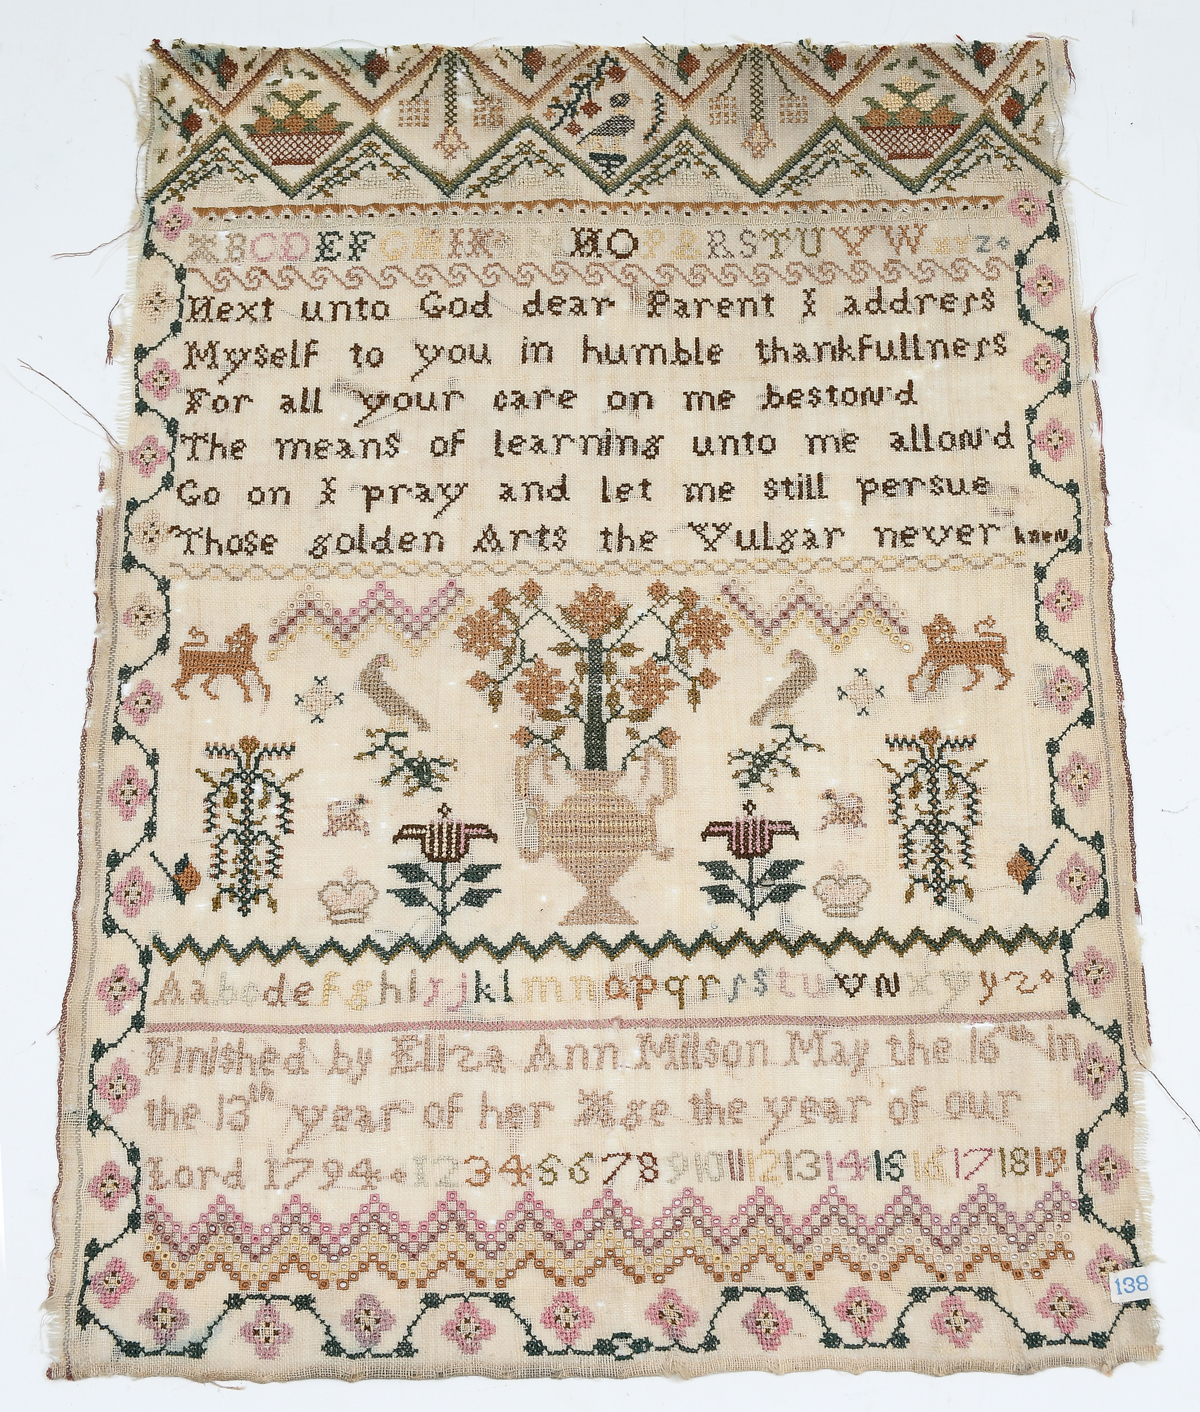 ABCDEFGHIK MNOPQRSTUVWXYZ
Next unto God dear Parent I addreſs
Myself to you in humble thankfullneſs
For all your care on me bestow'd
The means of learning unto me allow'd
Go on I pray and let me still persue
Those golden Arts the Vulgar never knew
Aabcdefghiſjklmnopqrſstuvwxyyz
Finished by Eliza Ann Millson May the 16th in
the 13th year of her Age the year of our
Lord 1794 12 3 4 5 6 7 8 9 10 11 12 13 14 15 16 17 18 19
138